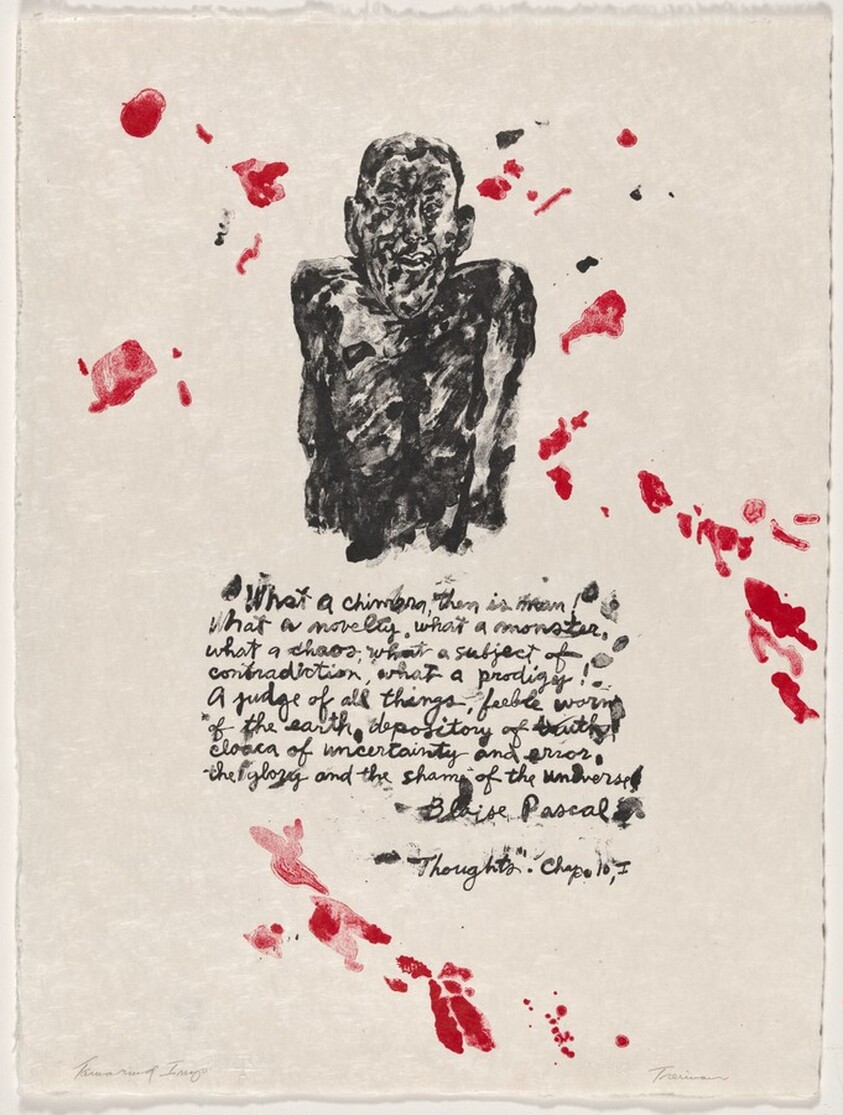 "What a chimera, then is man!
What a novelty, what a monster,
what a chaos, what a subject of
contradiction, what a prodigy!
A judge of all things, feeble worm
of the earth, depository of truth,
cloaca of uncertainty and error,
the glory and the shame of the universe!
Blaise Pascal
"Thoughts". Chap. 10, I
Tamarind Impr
Treiman